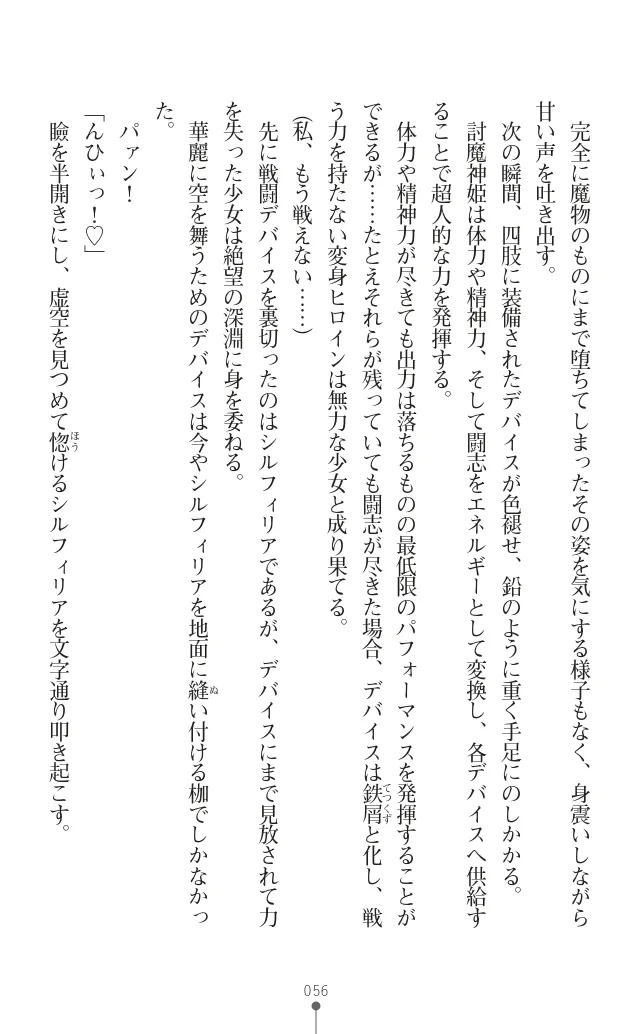 完全に魔物のものにまで堕ちてしまったその姿を気にする様子もなく、身震いしながら
甘い声を吐き出す。
次の瞬間、四肢に装備されたデバイスが色褪せ、鉛のように重く手足にのしかかる。
討魔神姫は体力や精神力、そして闘志をエネルギーとして変換し、各デバイスへ供給す
ることで超人的な力を発揮する。
体力や精神力が尽きても出力は落ちるものの最低限のパフォーマンスを発揮することが
できるが……たとえそれらが残っていても闘志が尽きた場合、デバイスは鉄屑と化し、戦
てつくず
う力を持たない変身ヒロインは無力な少女と成り果てる。
(私、もう戦えない……)
先に戦闘デバイスを裏切ったのはシルフィリアであるが、デバイスにまで見放されて力
を失った少女は絶望の深淵に身を委ねる。
華麗に空を舞うためのデバイスは今やシルフィリアを地面に縫い付ける枷でしかなかっ
ぬ
た。
パァン!
「んひぃっ!♡」
瞼を半開きにし、虚空を見つめて惚けるシルフィリアを文字通り叩き起こす。
ほう
056